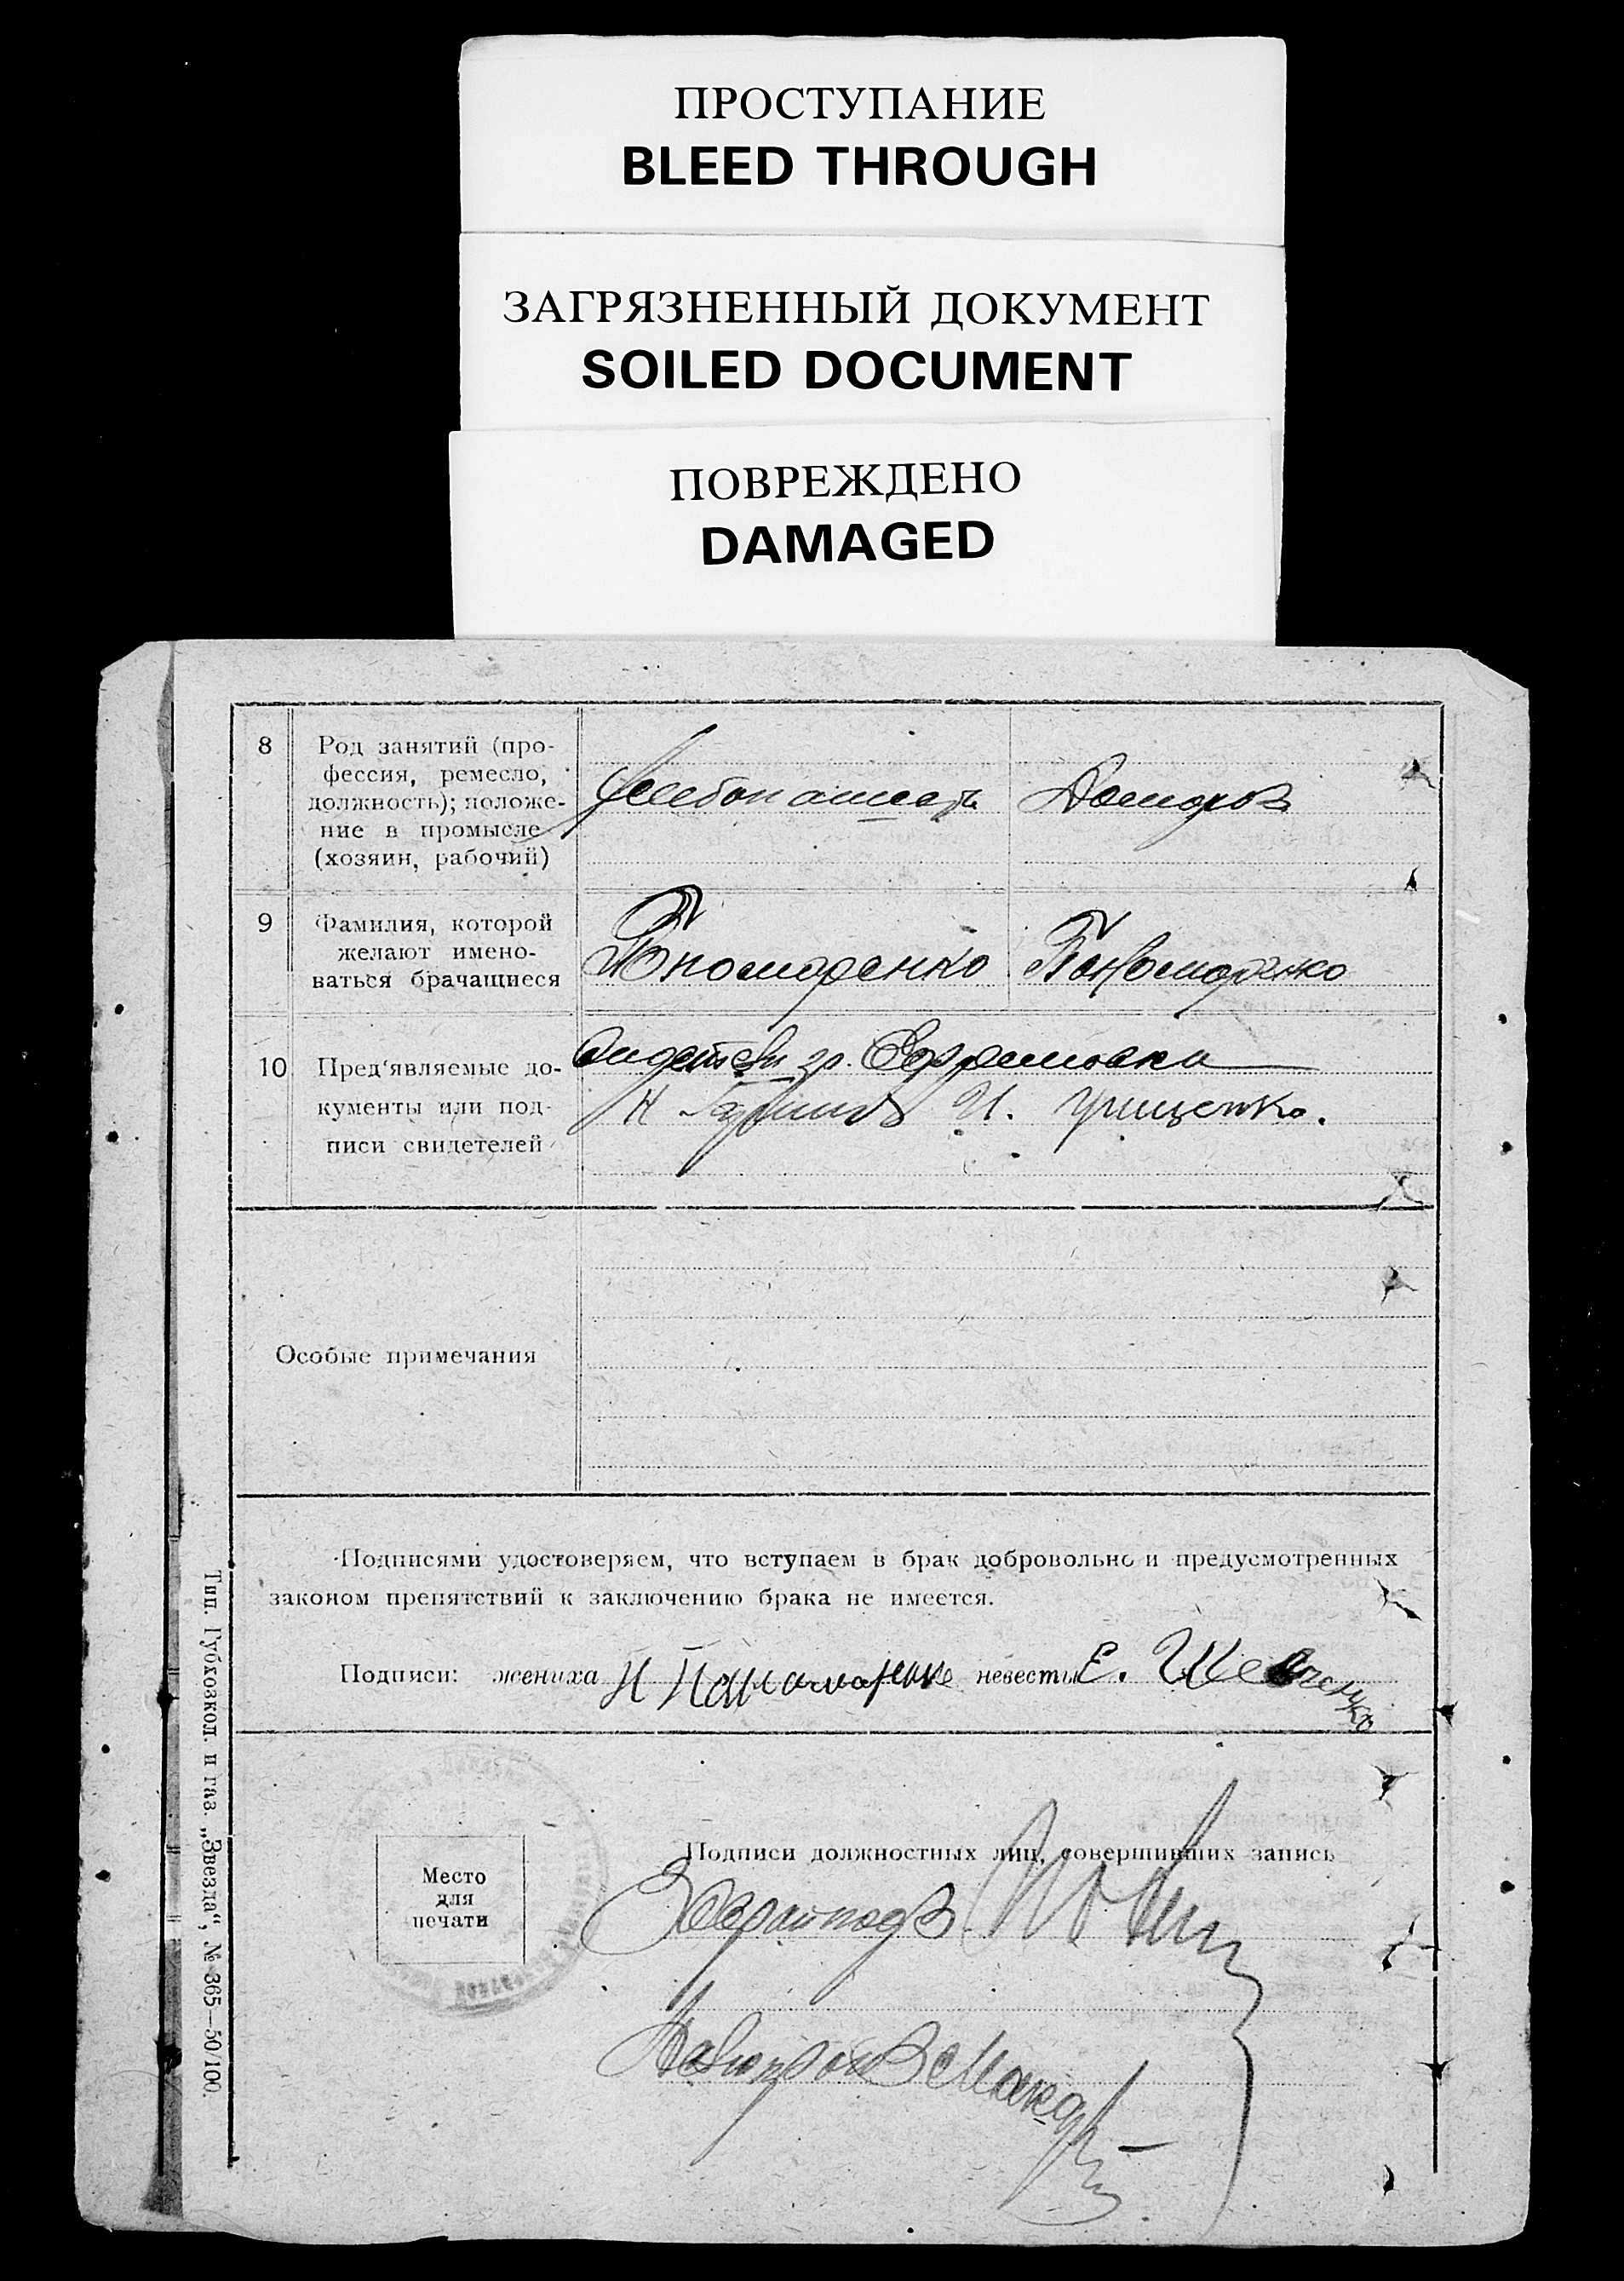 ПРОСТУПАНИЕ
BLEED THROUGH
ЗАГРЯЗНЕННЫЙ ДОКУМЕНТ
SOILED DOCUMENT
ПОВРЕЖДЕНО
DAMAGED
8
Род занятий (про-
фессия, ремесло,
должность); положе-
ние в промысле
(хозяин, рабочий)
Хлебопашец
9
Фамилия, которой
желают имено-
ваться брачащиеся
Пономаренко
10
Пред'являемые до-
кументы или под-
писи свидетелей
гр. Ефремовка
И. Грищенко.
Особые примечания
Подписями удостоверяем, что вступаем в брак добровольно и предусмотренных
законом препятствий к заключению брака не имеется.
Подписи: жениха Н невесты Е. Шевченко
Место
для
печати
Подписи должностных лиц, совершивших запись
Тип. Губхозкол. и газ. „Звезда“, № 365—50/100.